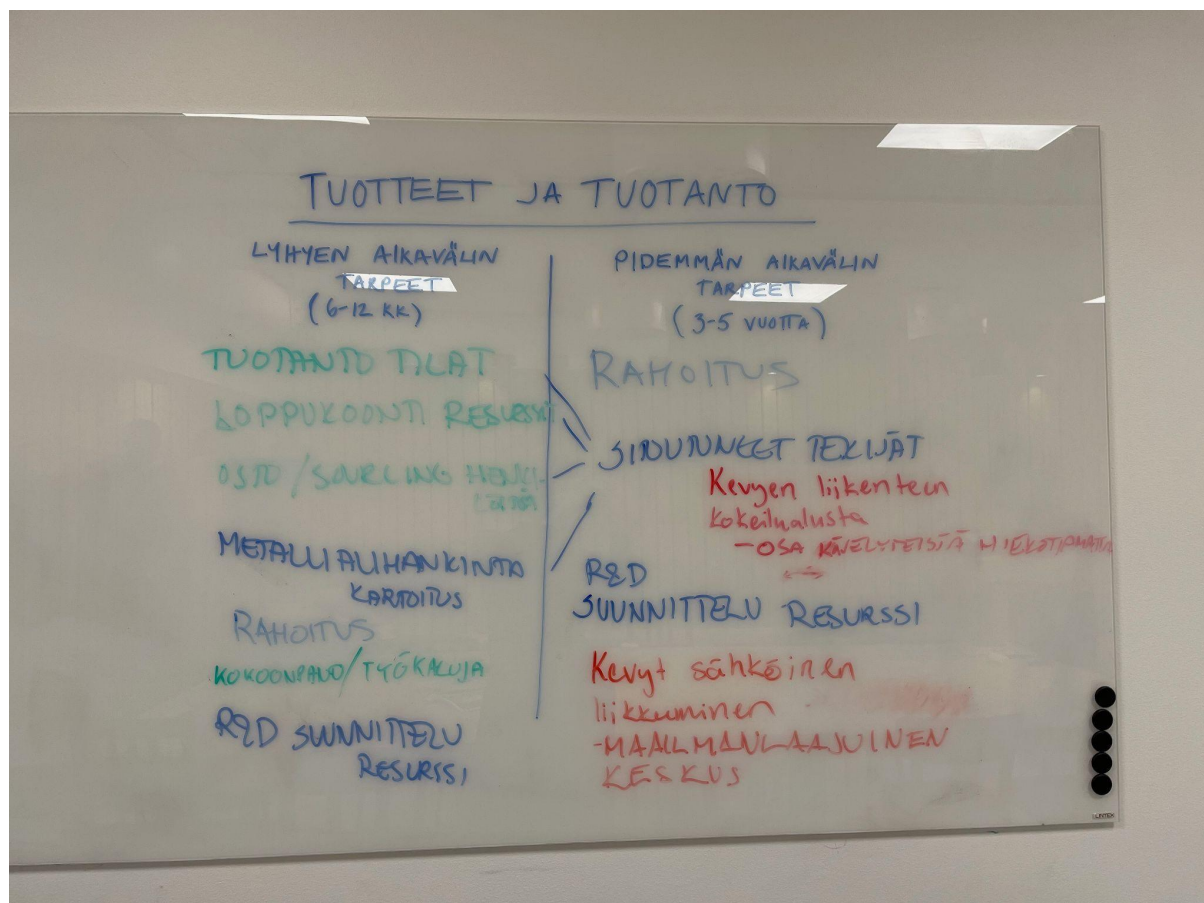 TUOTTEET JA TUOTANTO
LYHYEN AIKAVÄLIN
TARPEET
(6-12 KK)
TUOTANTO TILAT
LOPPUKOONTI RESURSSIT
OSTO / SOURCING HENKI-
LÖITÄ
METALLIALIHANKINTA
KARTOITUS
RAHOITUS
KOKOONPANO/TYÖKALUJA
R&D SUUNNITTELU
RESURSSI
PIDEMMÄN AIKAVÄLIN
TARPEET
(3-5 VUOTTA)
RAHOITUS
SIDOUTUNEET TEKIJÄT
Kevyen liikenteen
kokeilualusta
- OSA KÄVELYTEISTÄ
R&D
SUUNNITTELU RESURSSI
Kevyt sähköinen
liikkuminen
-MAAILMANLAAJUINEN
KESKUS